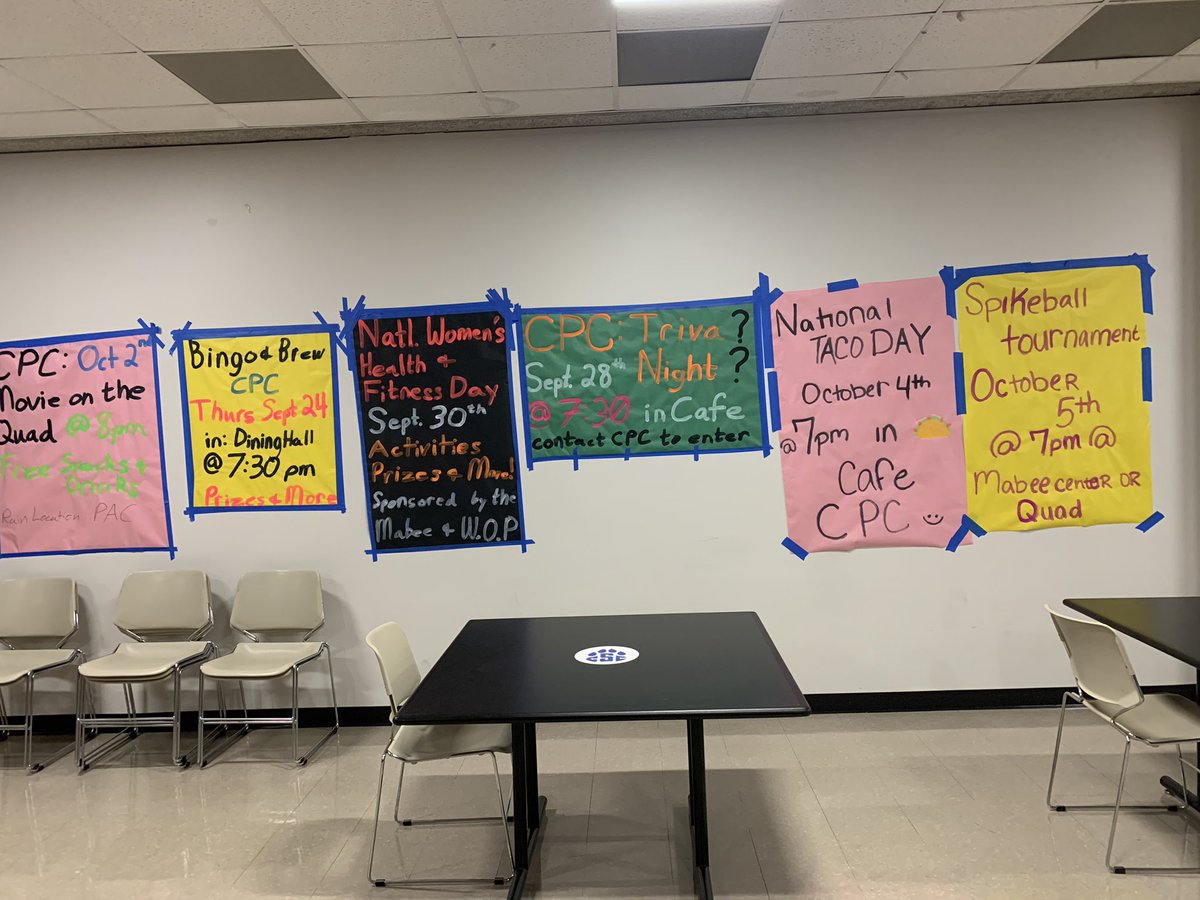 CPC: Oct 2nd
Movie on the
Quad @ 8pm
Free Snacks &
Drinks
Rain Location PAC
Bingo & Brew
CPC
Thurs Sept 24
in: Dining Hall
@ 7:30 pm
Prizes & More
Natl. Women's
Health &
Fitness Day
Sept. 30th
Activities
Prizes & More!
Sponsored by the
Mabee & W.O.P
CPC: Triva ?
Sept. 28th Night ?
@ 7:30 in Cafe
contact CPC to enter
National
TACO DAY
October 4th
@ 7pm in
Cafe
CPC
Spikeball
tournament
October
5th
@ 7pm @
Mabee center OR
Quad
CSC